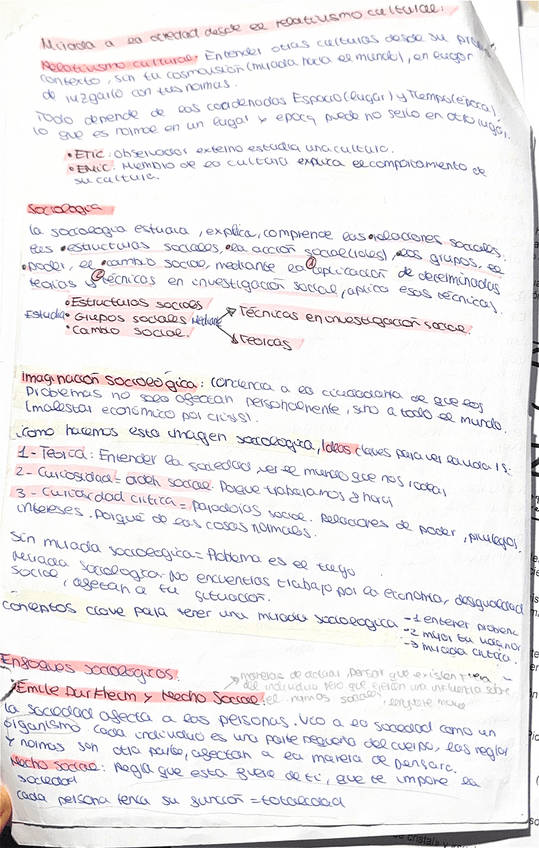 Mirada a la sociedad desde el relativismo cultural:
Relativismo cultural: Entender otras culturas desde su propio
contexto, sin tu cosmovisión (mirada hacia el mundo), en lugar
de juzgarlo con tus normas.
Todo depende de las coordenadas Espacio (lugar) y Tiempo (época).
lo que es normal en un lugar y época puede no serlo en otro lugar.
• ETIC: observador externo estudia una cultura.
• EMIC: Miembro de la cultura explica el comportamiento de
su cultura.
Sociología
la sociología estudia, explica, comprende las • relaciones sociales.
las • estructuras sociales, • la acción social (roles), • los grupos, el
• poder, el • cambio social, mediante la 1 aplicación de determinadas
teorías y 2 técnicas en investigación social, aplica esas técnicas).
• Estructuras sociales
Estudia • Grupos sociales Mediante → Técnicas en investigación social.
• Cambio social. → Teorías
Imaginación sociológica: conciencia a la ciudadanía de que los
problemas no solo afectan personalmente, sino a todo el mundo.
(malestar económico por crisis).
como hacemos esta imagen sociológica, Ideas claves para ver la vida is:
1 - Teórica: Entender la sociedad, ver el mundo que nos rodea
2 - Curiosidad = orden social. Porque trabajamos 8 horas
3 - Curiosidad crítica = paradojas social. Relaciones de poder, privilegios,
intereses. Porqué de las cosas normales.
Sin mirada sociológica = Problema es el tuyo
Mirada sociológica = No encuentras trabajo por la economía, desigualdad
social, afectan a tu situación.
conceptos clave para tener una mirada sociológica - 1 entender problema
- 2 mayor tu
→ 3 mirada crítica.
Enfoques sociológicos.
→ maneras de actuar, pensar que existen
del individuo pero que ejercen una influencia sobre
el. normas sociales,
Emile Durkheim y Hecho Social:
la sociedad afecta a las personas. Vio a la sociedad como un
organismo. cada individuo es una parte pequeña del cuerpo, las reglas
y normas son otra parte, afectan a la manera de pensar.
Hecho social: Regla que esta fuera de ti, que te impone la
sociedad
cada persona tenía su función = totalidad